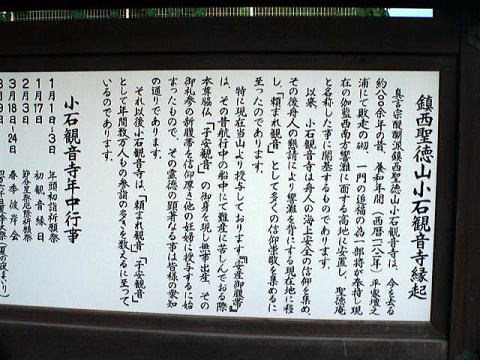 鎮西聖徳山小石観音寺縁起
真言宗醍醐派鎮西聖徳山小石観音寺は、今を去る
約八〇〇年の昔、養和年間(西暦一一八一年)平家壇之
浦にて敗走の砌、一門の追福の為一部将が奉持し現
在の伽藍西南方響灘に面する高地に安置し、聖徳庵
と名称した事に開基するものであります。
以来、小石観音寺は舟人の海上安全の信仰を集め、
その後舟人の懇請により響灘を背にする現在地に移
し、「頼まれ観音」として多くの信仰崇敬を集めるに
至ったのであります。
特に現在当山より授与しております『安産御腹帯』
は、その昔航行中の船中にて難産に苦しんでおる際
本尊脇仏「子安観音」の御身を現し無事出産、その
御礼参の折腹帯を信仰厚き他の妊婦に授与するに始
まったもので、その霊徳の顕著なる事は皆様の衆知
の通りであります。
それ以後小石観音寺は、「頼まれ観音」「子安観音」
として年間数万人もの参詣の多くを数えるに至って
いるのであります。
小石観音寺年中行事
1月1日~3日 年頭初詣祈願祭
1月17日 初観音縁日
2月3日 節分星祭厄除祈願祭
3月18日~24日 春季彼岸会